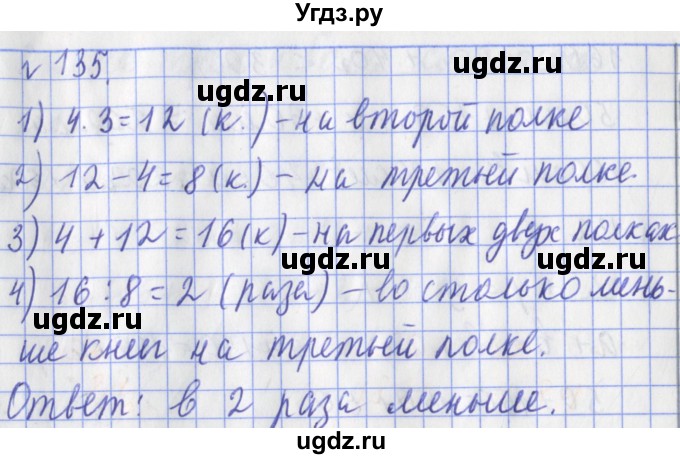 Угдз.ру
№ 135.
ugdz.ru ugdz.ru
1) 4 · 3 = 12 (к.) – на второй полке
ugdz.ru ugdz.ru
2) 12 – 4 = 8 (к.) – на третьей полке.
ugdz.ru ugdz.ru
3) 4 + 12 = 16 (к) – на первых двух полках
ugdz.ru ugdz.ru
4) 16 : 8 = 2 (раза) – во столько мень-
ugdz.ru ugdz.ru
ше книг на третьей полке.
ugdz.ru ugdz.ru
Ответ: в 2 раза меньше.
ugdz.ru